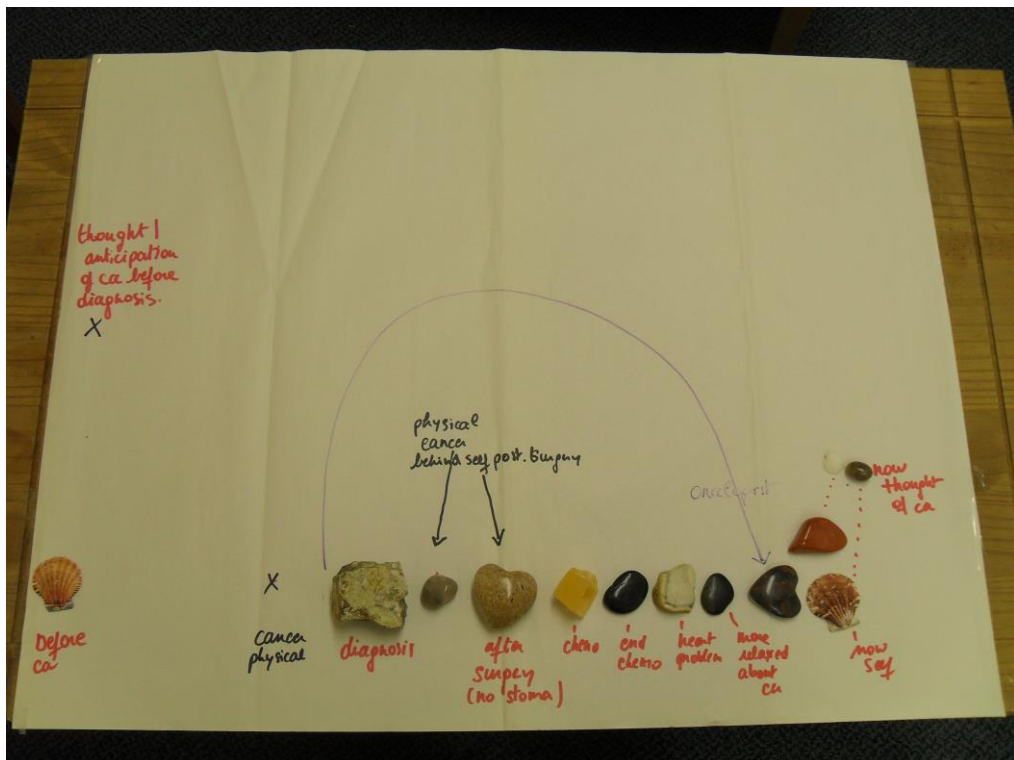 thought /
anticipation
of ca before
diagnosis.
X
physical
cancer
behind self post. surgery
oncologist
now
thought
of ca
Before
ca
X
cancer
physical
diagnosis
after
surgery
(no stoma)
chemo
end
chemo
heart
problem
more
relaxed
about
ca
now
self